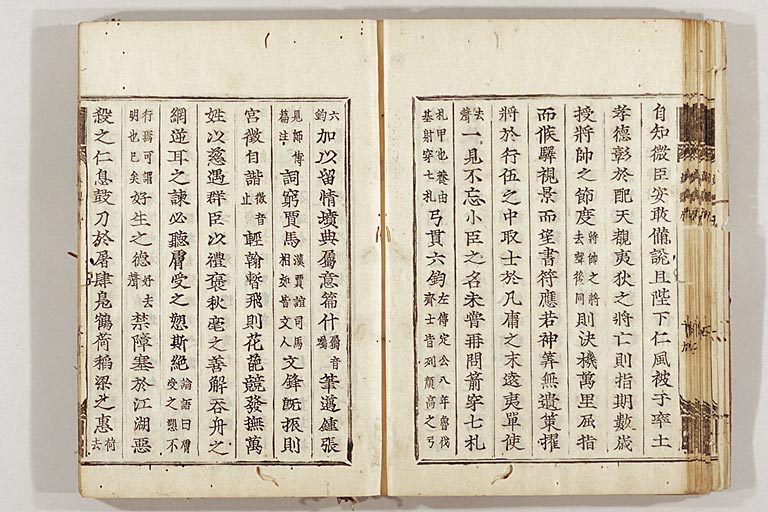 自知微臣安敢備說且陛下仁風被于率土
孝德彰於配天觀夷狄之將亡則指期數歲
授將帥之節度將帥之將去聲後同則決機萬里屈指
而候驛視景而望書符應若神筭無遺策擢
將於行伍之中取士於凡庸之末遠夷單使
去聲一見不忘小臣之名未嘗再問箭穿七札
札甲也養由基射穿七札弓貫六鈞左傳定公八年魯伐齊士皆列顏高之弓
六鈞加以留情墳典屬意篇什屬音矚筆邁鍾張
見師傅篇注詞窮賈馬漢賈誼司馬相如皆文人文鋒旣振則
宮徵自諧徵音止輕翰暫飛則花蘤競發撫萬
姓以慈遇群臣以禮褒秋毫之善解吞舟之
網逆耳之諫必聽膚受之愬斯絶論語曰膚受之愬不
行焉可謂明也已矣好生之德好去聲禁障塞於江湖惡
殺之仁息鼓刀於屠肆鳧鶴荷稻梁之惠荷去